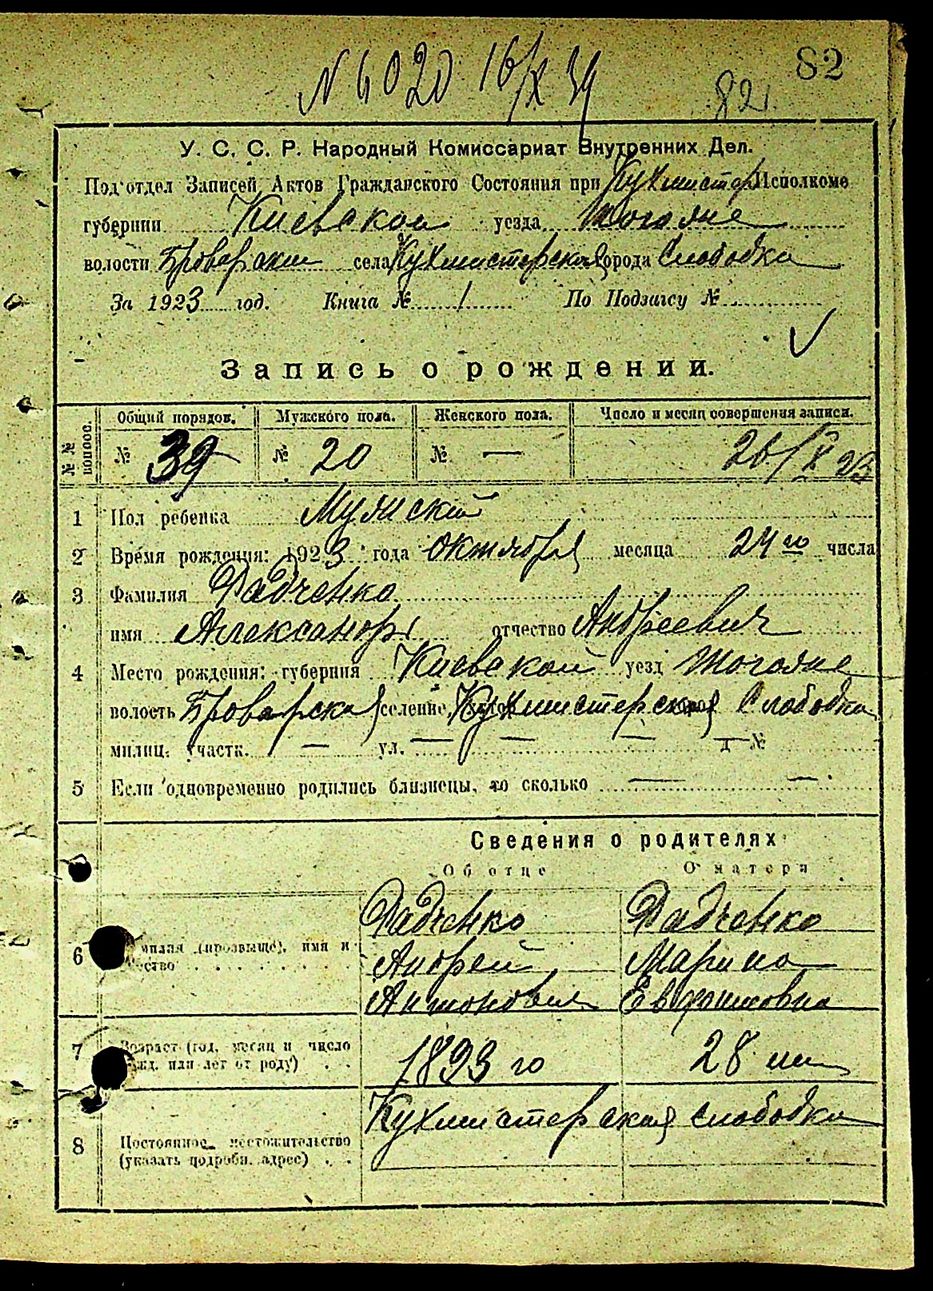 № 6020 16/X 34
82
82
У. С. С. Р. Народный Комиссариат Внутренних Дел.
Под'отдел Записей Актов Гражданского Состояния при Кухмистер Исполкоме
губернии Киевской уезда тогоже
волости Броварской села Кухмистерская города Слободка
За 1923 год. Книга № 1 По Подзагсу №
Запись о рождении.
№№ Общий порядов. Мужского пола. Женского пола. Число и месяц совершения записи.
№ 39 № 20 № — 26/X 23
1 Пол ребенка Мужский
2 Время рождения: 1923 года октября месяца 24 го числа
3 Фамилия Радченко
имя Александр отчество Андреевич
4 Место рождения: губерния Киевской уезд тогоже
волость Броварская селение Кухмистерская Слободка
милиц. участк. — ул. — — — д №
5 Если одновременно родились близнецы, то сколько — —
Сведения о родителях
Об отце О матери
6 (прозвище), имя и Радченко Радченко
Андрей Марина
Антонович Евфимовна
7 Возраст (год, месяц и число
или лет от роду) 1893 го 28 лет
Кухмистерская слободка
8 Постоянное местожительство
(указать подробн. адрес)